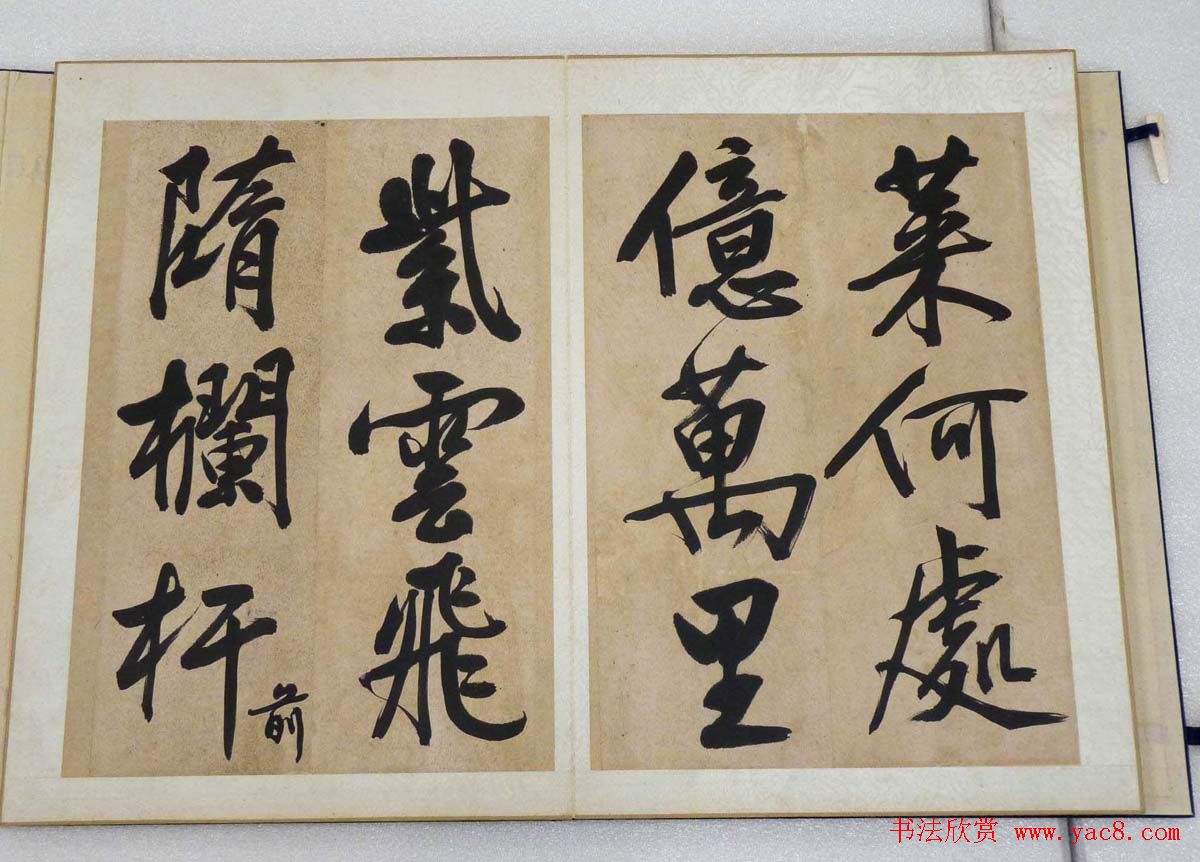 萊何處
億萬里
紫雲飛
隋欄杆前
书法欣赏 www.yac8.com